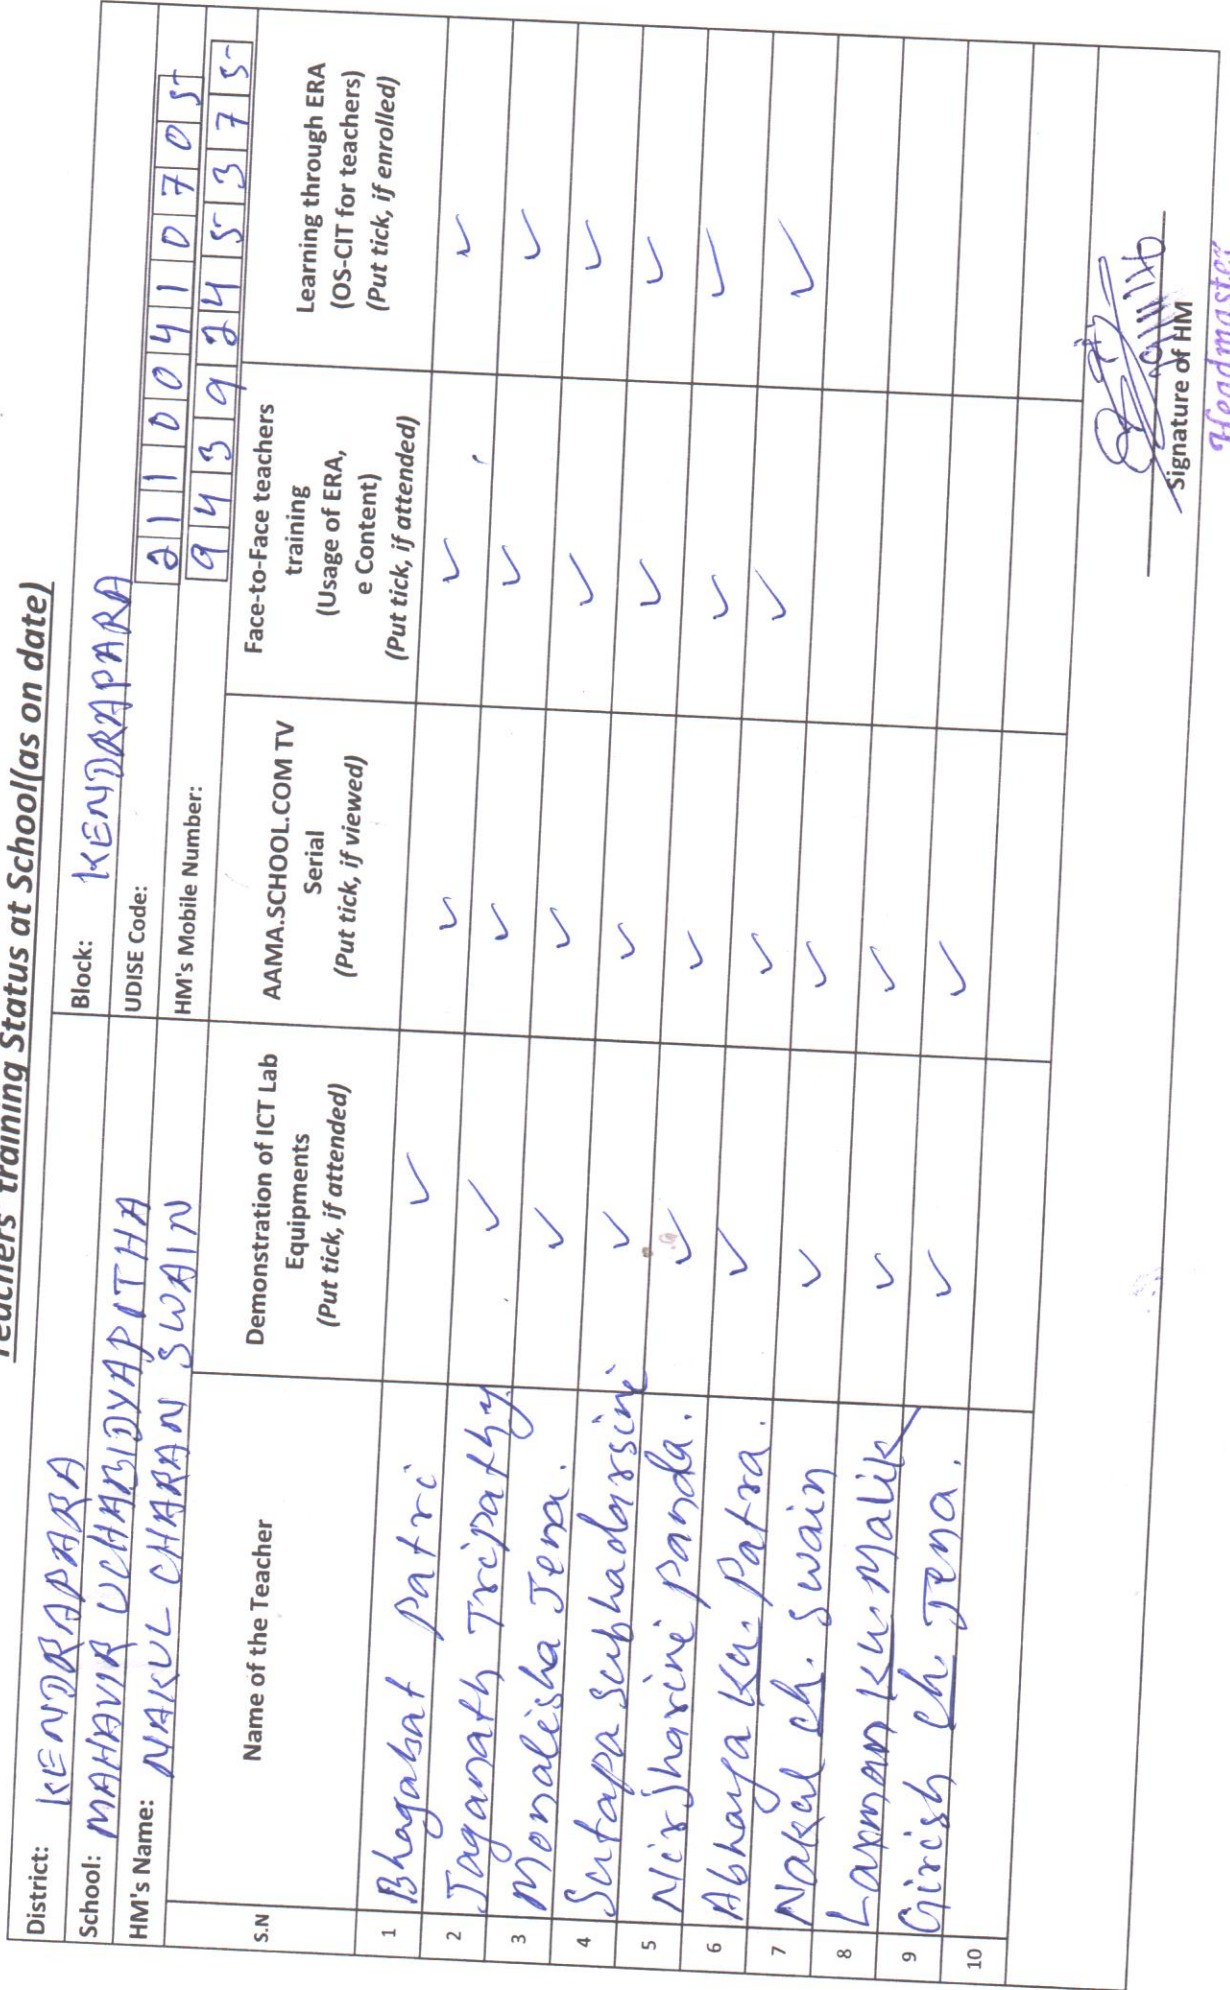 Teachers' training Status at School(as on date)
District: KENDRAPARA
Block: KENDRAPARA
School: MAHAVIR UCHABIDYAPITHA
UDISE Code: 21100410705
HM's Name: NAKUL CHARAN SWAIN
HM's Mobile Number: 9439245375
S.N
Name of the Teacher
Demonstration of ICT Lab
Equipments
(Put tick, if attended)
AAMA.SCHOOL.COM TV
Serial
(Put tick, if viewed)
Face-to-Face teachers
training
(Usage of ERA,
e Content)
(Put tick, if attended)
Learning through ERA
(OS-CIT for teachers)
(Put tick, if enrolled)
1 Bhagabat Patri ✓ ✓ ✓ ✓
2 Jaganath Tripathy ✓ ✓ ✓ ✓
3 Monalisha Jena. ✓ ✓ ✓ ✓
4 Sutapa Subhadarsini ✓ ✓ ✓ ✓
5 Nirjharini Panda. ✓ ✓ ✓ ✓
6 Abhaya Ku. Patra. ✓ ✓ ✓ ✓
7 Nakul Ch. Swain ✓ ✓
8 Laxman Ku. Malik ✓ ✓
9 Girish Ch. Jena. ✓ ✓
10
Signature of HM
Headmaster